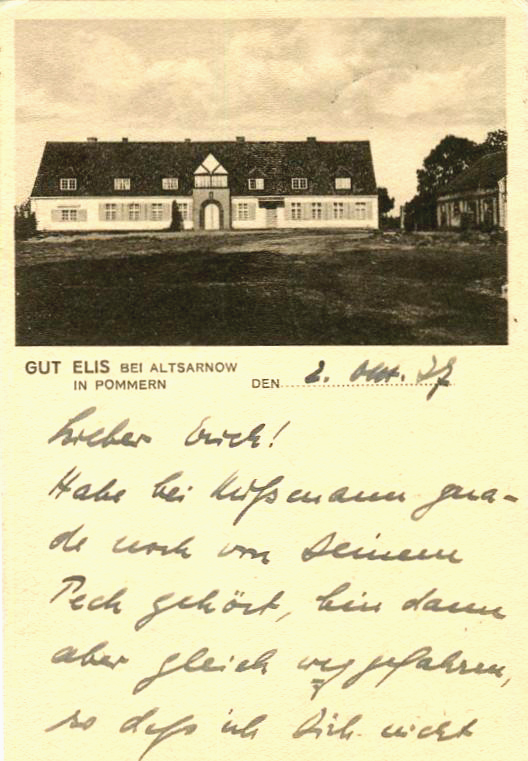 GUT ELIS BEI ALTSARNOW
IN POMMERN
DEN 2. Okt. 37
Lieber Erich!
Habe bei Küßmann gra-
de noch von Deinem
Pech gehört, bin dann
aber gleich weggefahren,
so daß ich Dich nicht